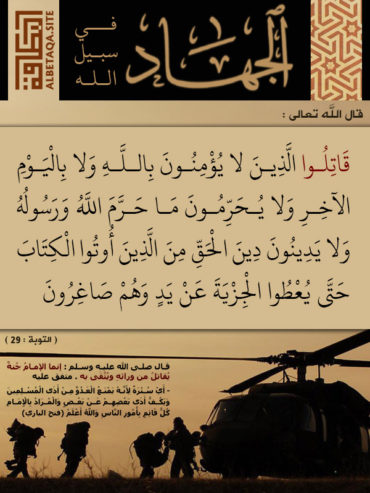 البطاقة
ALBETAQA.SITE
في سبيل الله
الجهاد
قال الله تعالى :
قَاتِلُوا الَّذِينَ لا يُؤْمِنُونَ بِاللَّهِ وَلا بِالْيَوْمِ
الآخِرِ وَلا يُحَرِّمُونَ مَا حَرَّمَ اللَّهُ وَرَسُولُهُ
وَلا يَدِينُونَ دِينَ الْحَقِّ مِنَ الَّذِينَ أُوتُوا الْكِتَابَ
حَتَّى يُعْطُوا الْجِزْيَةَ عَنْ يَدٍ وَهُمْ صَاغِرُونَ
( التوبة : 29 )
قال صلى الله عليه وسلم : إنما الإمامُ جُنةٌ
يُقاتَلُ من ورائِهِ ويُتَّقى به . متفق عليه
- أَيْ سُتْرَةٌ لِأَنَّهُ يَمْنَعُ الْعَدُوَّ مِنْ أَذَى الْمُسْلِمِينَ
وَيَكُفُّ أَذَى بَعْضِهِمْ عَنْ بَعْضٍ وَالْمُرَادُ بِالْإِمَامِ
كُلُّ قَائِمٍ بِأُمُورِ النَّاسِ وَاللَّهُ أَعْلَمُ (فتح الباري)